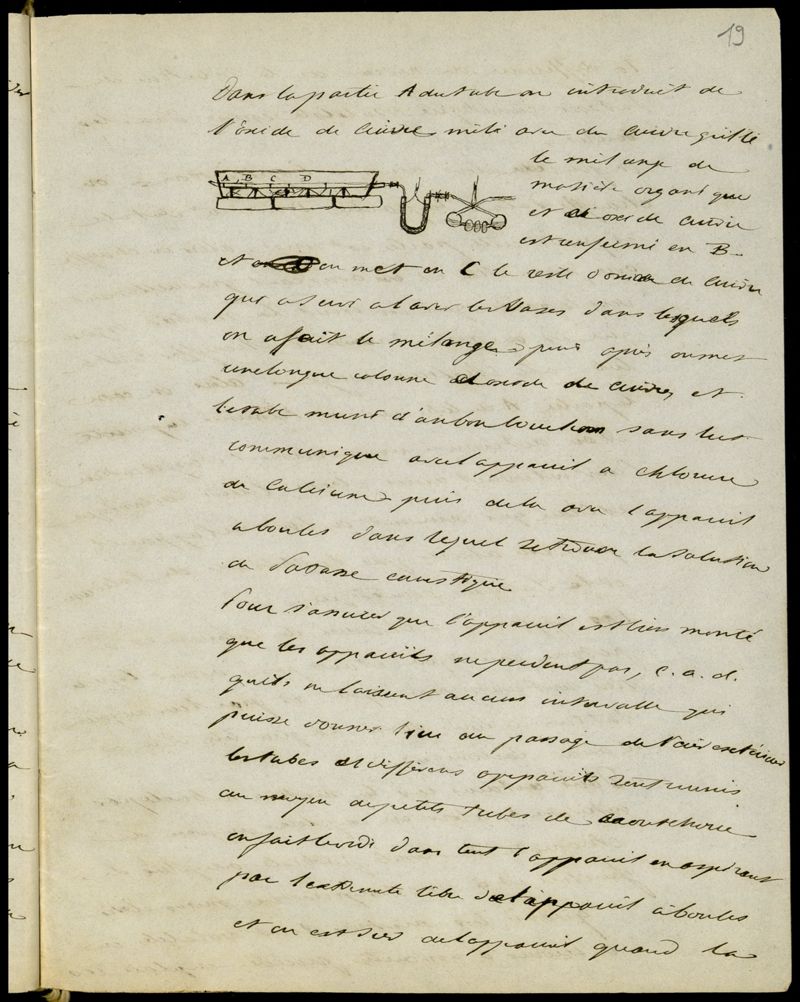 19
Dans la partie A du tube on introduit de
l'oxide de cuivre mêlé avec du cuivre grillé
le mélange de
matière organique
et d'oxide de cuivre
est renfermé en B
A B C D
et on met en C le reste d'oxide de cuivre
qui a servi a laver les Vases dans lesquels
on a fait le mélange puis après on met
une longue colonne d'oxide de cuivre, et
le tube muni d'un bon bouchon
communique avec l'appareil a chlorure
de Calcium puis de la avec l'appareil
a boules dans lequel se trouve la solution
de Potasse caustique
Pour s'assurer que l'appareil est bien monté
que les appareils ne perdent pas, c. a. d.
qu'ils ne laissent aucun intervalle qui
puisse donner lieu au passage de l'air extérieur
les tubes et différens appareils sont reunis
au moyen de petits tubes de caoutchouc
on fait le vide dans tout l'appareil en aspirant
par l'extremité libre de l'appareil à boules
et on est sur de l'appareil quand la